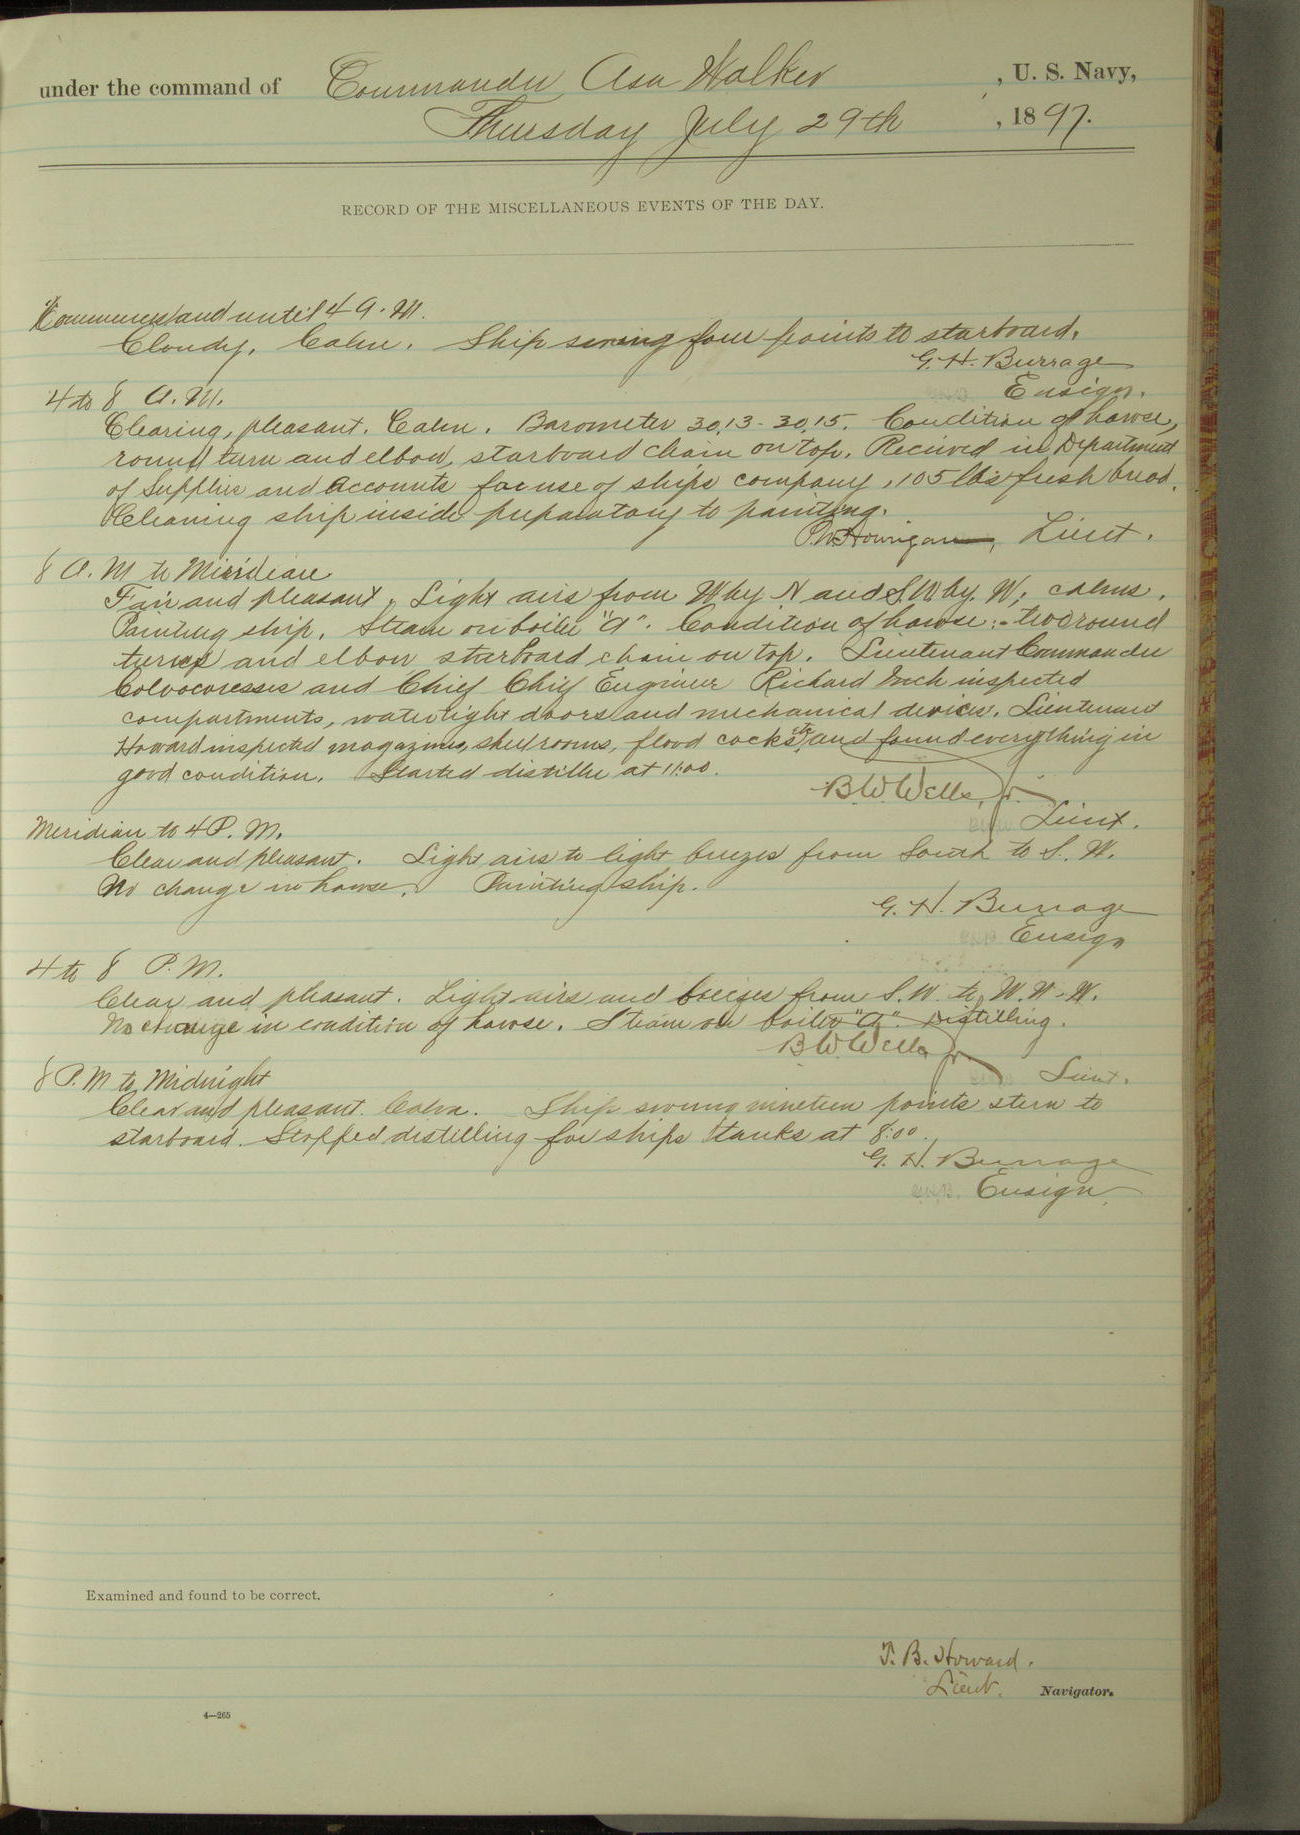 under the command of Commander Asa Walker, U. S. Navy,
Thursday July 29th, 1897.
RECORD OF THE MISCELLANEOUS EVENTS OF THE DAY.
Commences and until 4 A. M.
Cloudy. Calm. Ship swung four points to starboard.
G. H. Burrage
Ensign.
4 to 8 A. M.
Clearing, pleasant. Calm. Barometer 30.13 - 30.15. Condition of hawse,
round turn and elbow, starboard chain on top. Recieved in Department
of Supplies and Accounts for use of ships company, 105 lbs fresh bread.
Cleaning ship inside preparatory to painting.
P. W. Hourigan, Lieut.
8 A. M to Meridian
Fair and pleasant. Light airs from W by N and S W by. W; calms.
Painting ship. Steam on boiler "A". Condition of hawse:- two round
turns and elbow starboard chain on top. Lieutenant Commander
Colvocoresses and Chief Chief Engineer Richard Inch inspected
compartments, watertight doors and mechanical devices. Lieutenant
Howard inspected magazines, shell rooms, flood cocks etc, and found everything in
good condition. Started distiller at 11:00.
B. W. Wells, Jr.
Lieut.
Meridian to 4 P. M.
Clear and pleasant. Light airs to light breezes from South to S. W.
No change in hawse. Painting ship.
G. H. Burrage
Ensign
4 to 8 P. M.
Clear and pleasant. Light airs and breezes from S. W. to W. N - W.
No change in condition of hawse. Steam on boiler "A". Distilling.
B. W. Wells Jr.
Lieut.
8 P. M to Midnight
Clear and pleasant. Calm. Ship swung nineteen points stern to
starboard. Stopped distilling for ships tanks at 8:00.
G. H. Burrage
Ensign.
Examined and found to be correct.
T. B. Howard.
Lieut. Navigator.
4—265